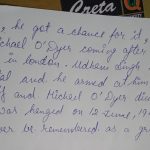 Creta
, he got a chance for it,
Michael O'Dyer coming after
in london. Udham Singh
and he armed at him
if and Michael O'Dyer die
was hanged on 12-June, 19
be remembered as a gr